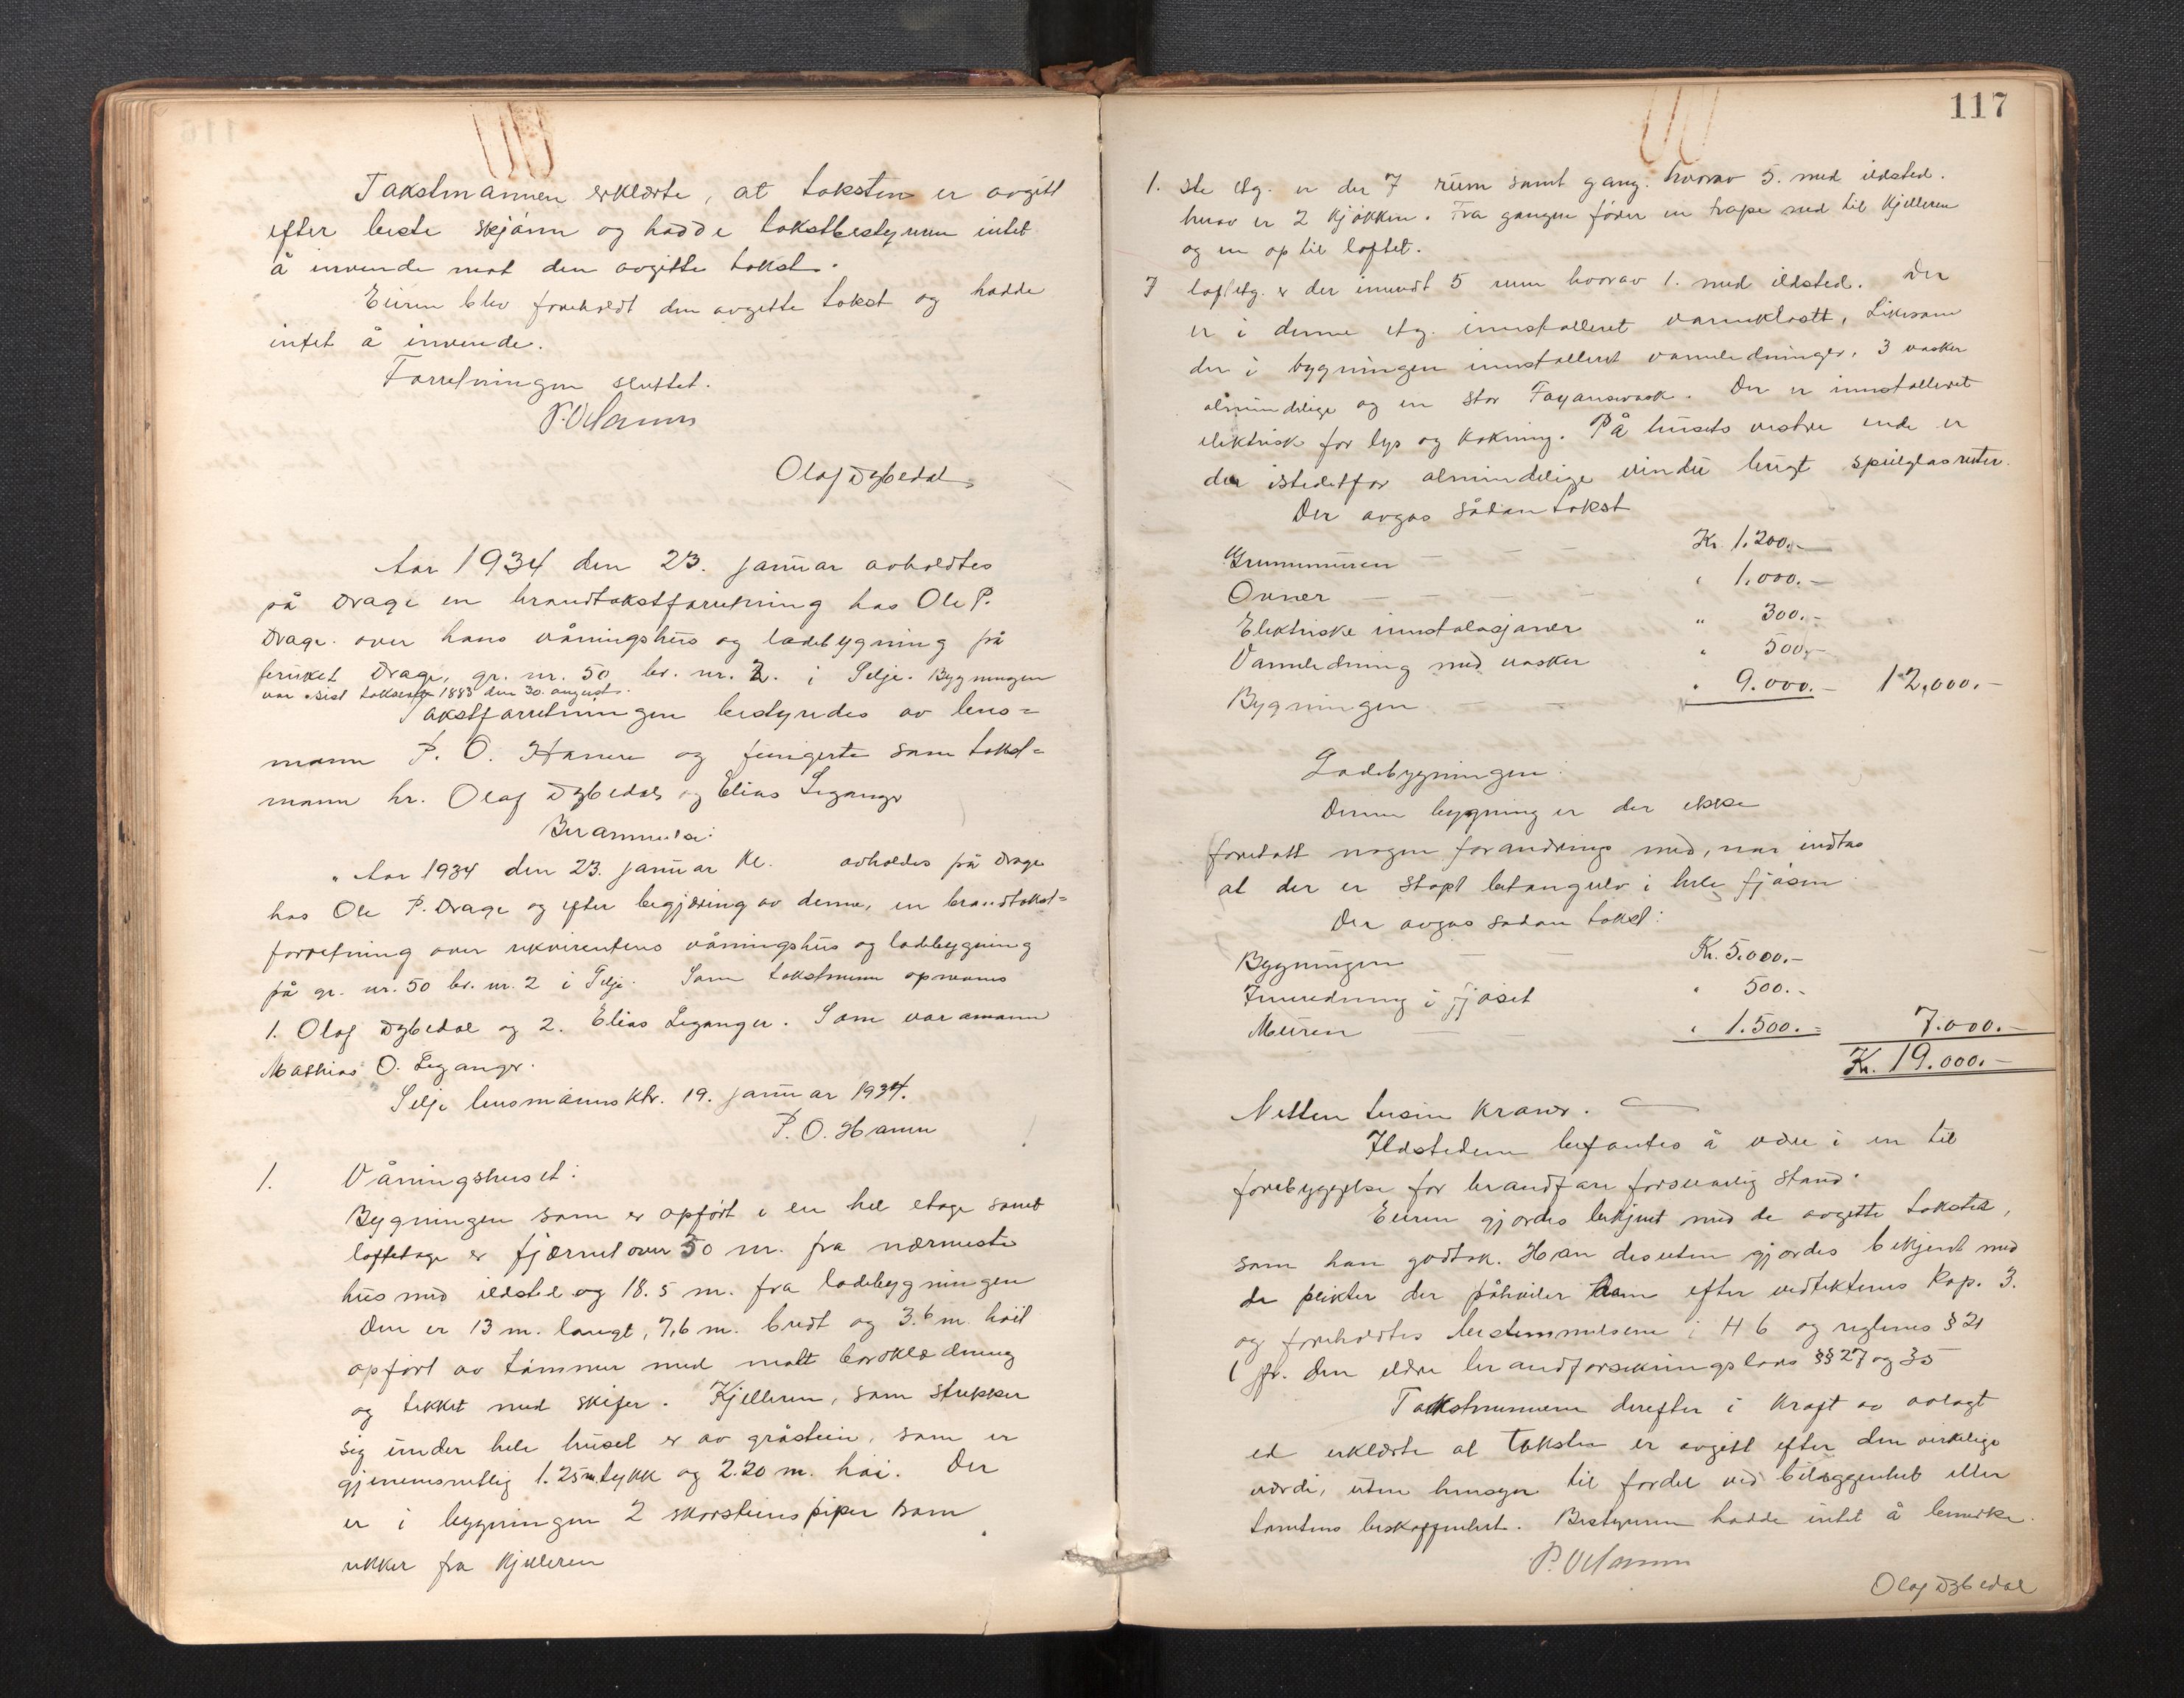 Takstmannen erklærte, at taksten er avgitt
efter beste skjønn og hadde takstbestyreren intet
å invende mot den avgitte takst.
Eieren blev foreholdt den avgitte takst og hadde
intet å invende.
Forretningen sluttet.
P. O. Hamre
Olaf Dybedal
Aar 1934 den 23. januar avholdtes
på Drage en brandtakstforretning hos Ole P.
Drage over hans våningshus og ladebygning på
bruket Drage, gr. nr. 50 br. nr. 2. i Selje. Bygningen
var sist taksert 1883 den 30. august.
Takstforretningen bestyredes av lens=
mann P. O. Hamre og fungerte som takst=
mann hr. Olaf Dybedal og Elias Leganger
Berammelse:
" Aar 1934 den 23. januar kl. avholdes på Drage
hos Ole P. Drage og efter begjæring av denne, en brandtakst=
forretning over rekvirentens våningshus og ladebygning
på gr. nr. 50 br. nr. 2 i Selje. Som takstmenn opnevnes
1. Olaf Dybedal og 2. Elias Leganger. Som varamann
Mathias O. Leganger.
Selje lensmannsktr. 19. januar 1934.
P. O. Hamre
1. Våningshuset:
Bygningen som er opført i en hel etage samt
loftetage er fjernet over 50 m. fra nærmeste
hus med ildsted og 18.5 m. fra ladebygningen
Den er 13 m. langt, 7,6 m. bredt og 3.6 m. høit
opført av tømmer med malt bordklædning
og tekket med skifer. Kjelleren, som strekker
sig under hele huset er av gråstein, som er
gjenemsnitlig 1.25 m. tykk og 2.20 m. høi. Der
er i bygningen 2 skorsteinspiper som
rekker fra kjelleren
117
1. ste etg. er der 7 rum samt gang. hvorav 5. med ildsted.
herav er 2 kjøkken. Fra gangen fører en trape ned til kjelleren
og en op til loftet.
I loftetg. er der innredt 5 rum hvorav 1. med ildsted. Der
er i denne etg. innstalleret vannklosett, Likesom
der i bygningen innstalleret vannledninger, 3 vasker
almindelige og en stor Fayansevask. Der er innstalleret
elektrisk for lys og kokning. På husets vestre ende er
der istedetfor almindelige vindu brugt speilglasruter.
Der avgas sådan takst
Grunnmuren — — — Kr. 1.200.—
Ovner — — — — " 1.000.—
Elektriske innstalasjoner " 300.—
Vannledning med vasker " 500.—
Bygningen — — " 9.000.— 12,000.—
Ladebygningen:
Denne bygning er der ikke
foretatt nogen forandring med, når indtas
at der er støpt betongulv i hele fjøsen
Der avgas sådan takst:
Bygningen — — Kr. 5.000.—
Innredning i fjøset " 500.—
Muren — — " 1.500.= 7.000.—
Kr. 19.000.—
Nitten tusin kroner. —
Ildstedene befantes å være i en til
forebyggelse for brandfare forsvarlig stand.
Eieren gjordes bekjent med de avgitte takster,
som han godtok. Han desuten gjordes bekjent med
de plikter der påhviler ham efter vedtektenes kap. 3.
og foreholdtes bestemmelsene i H 6 og reglenes § 21
( jfr. den eldre brandforsikringslovs §§ 27 og 35
Takstmennene derefter i kraft av avlagt
ed erklærte at taksten er avgitt efter den virkelige
værdi, uten hensyn til fordel ved beliggenhet eller
tomtens beskaffenhet. Bestyreren hadde intet å bemerke.
P. O. Hamre
Olaf Dybedal